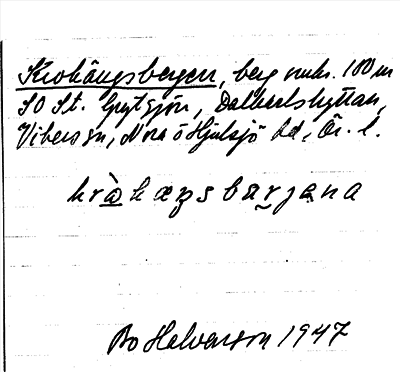 Krokängsbergen, berg omkr. 100 m
SO St. Grytsjön, Dalkarlshyttan,
Vikers sn, Nora o Hjulsjö bd, Ör. l.
kràkæŋsbærjəna
Bo Halvarson 1947